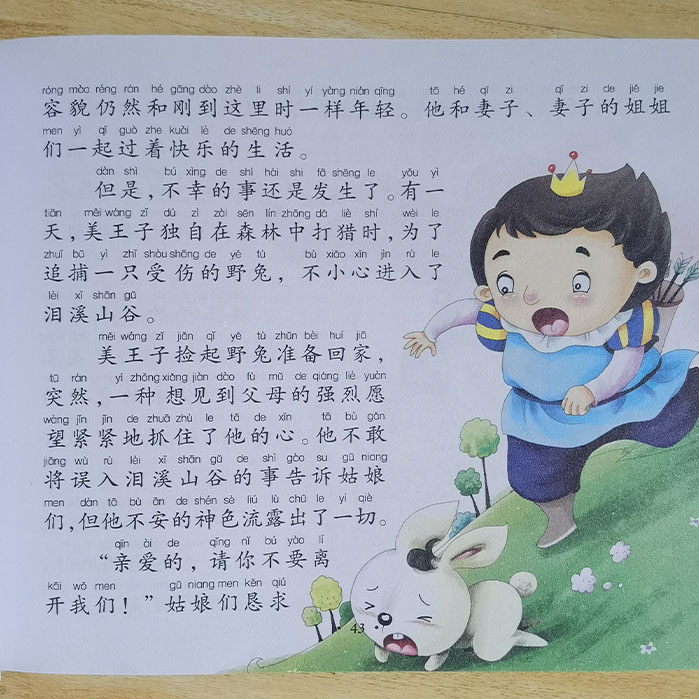 róng mào réng rán hé gāng dào zhè li shí yí yàng nián qīng tā hé qī zi qī zi de jiě jie
容貌仍然和刚到这里时一样年轻。他和妻子、妻子的姐姐
men yì qǐ guò zhe kuài lè de shēng huó
们一起过着快乐的生活。
dàn shì bú xìng de shì hái shi fā shēng le yǒu yì
但是,不幸的事还是发生了。有一
tiān měi wáng zǐ dú zì zài sēn lín zhōng dǎ liè shí wèi le
天,美王子独自在森林中打猎时,为了
zhuī bǔ yì zhī shòu shāng de yě tù bù xiǎo xīn jìn rù le
追捕一只受伤的野兔, 不小心进入了
lèi xī shān gǔ
泪溪山谷。
měi wáng zǐ jiǎn qǐ yě tù zhǔn bèi huí jiā
美王子捡起野兔准备回家,
tū rán yì zhǒng xiǎng jiàn dào fù mǔ de qiáng liè yuàn
突然,一种想见到父母的强烈愿
wàng jǐn jǐn de zhuā zhù le tā de xīn tā bù gǎn
望紧紧地抓住了他的心。他不敢
jiāng wù rù lèi xī shān gǔ de shì gào su gū niang
将误入泪溪山谷的事告诉姑娘
men dàn tā bù ān de shén sè liú lù chū le yí qiè
们,但他不安的神色流露出了一切。
qīn ài de qǐng nǐ bú yào lí
“亲爱的,请你不要离
kāi wǒ men gū niang men kěn qiú
开我们!”姑娘们恳求
43